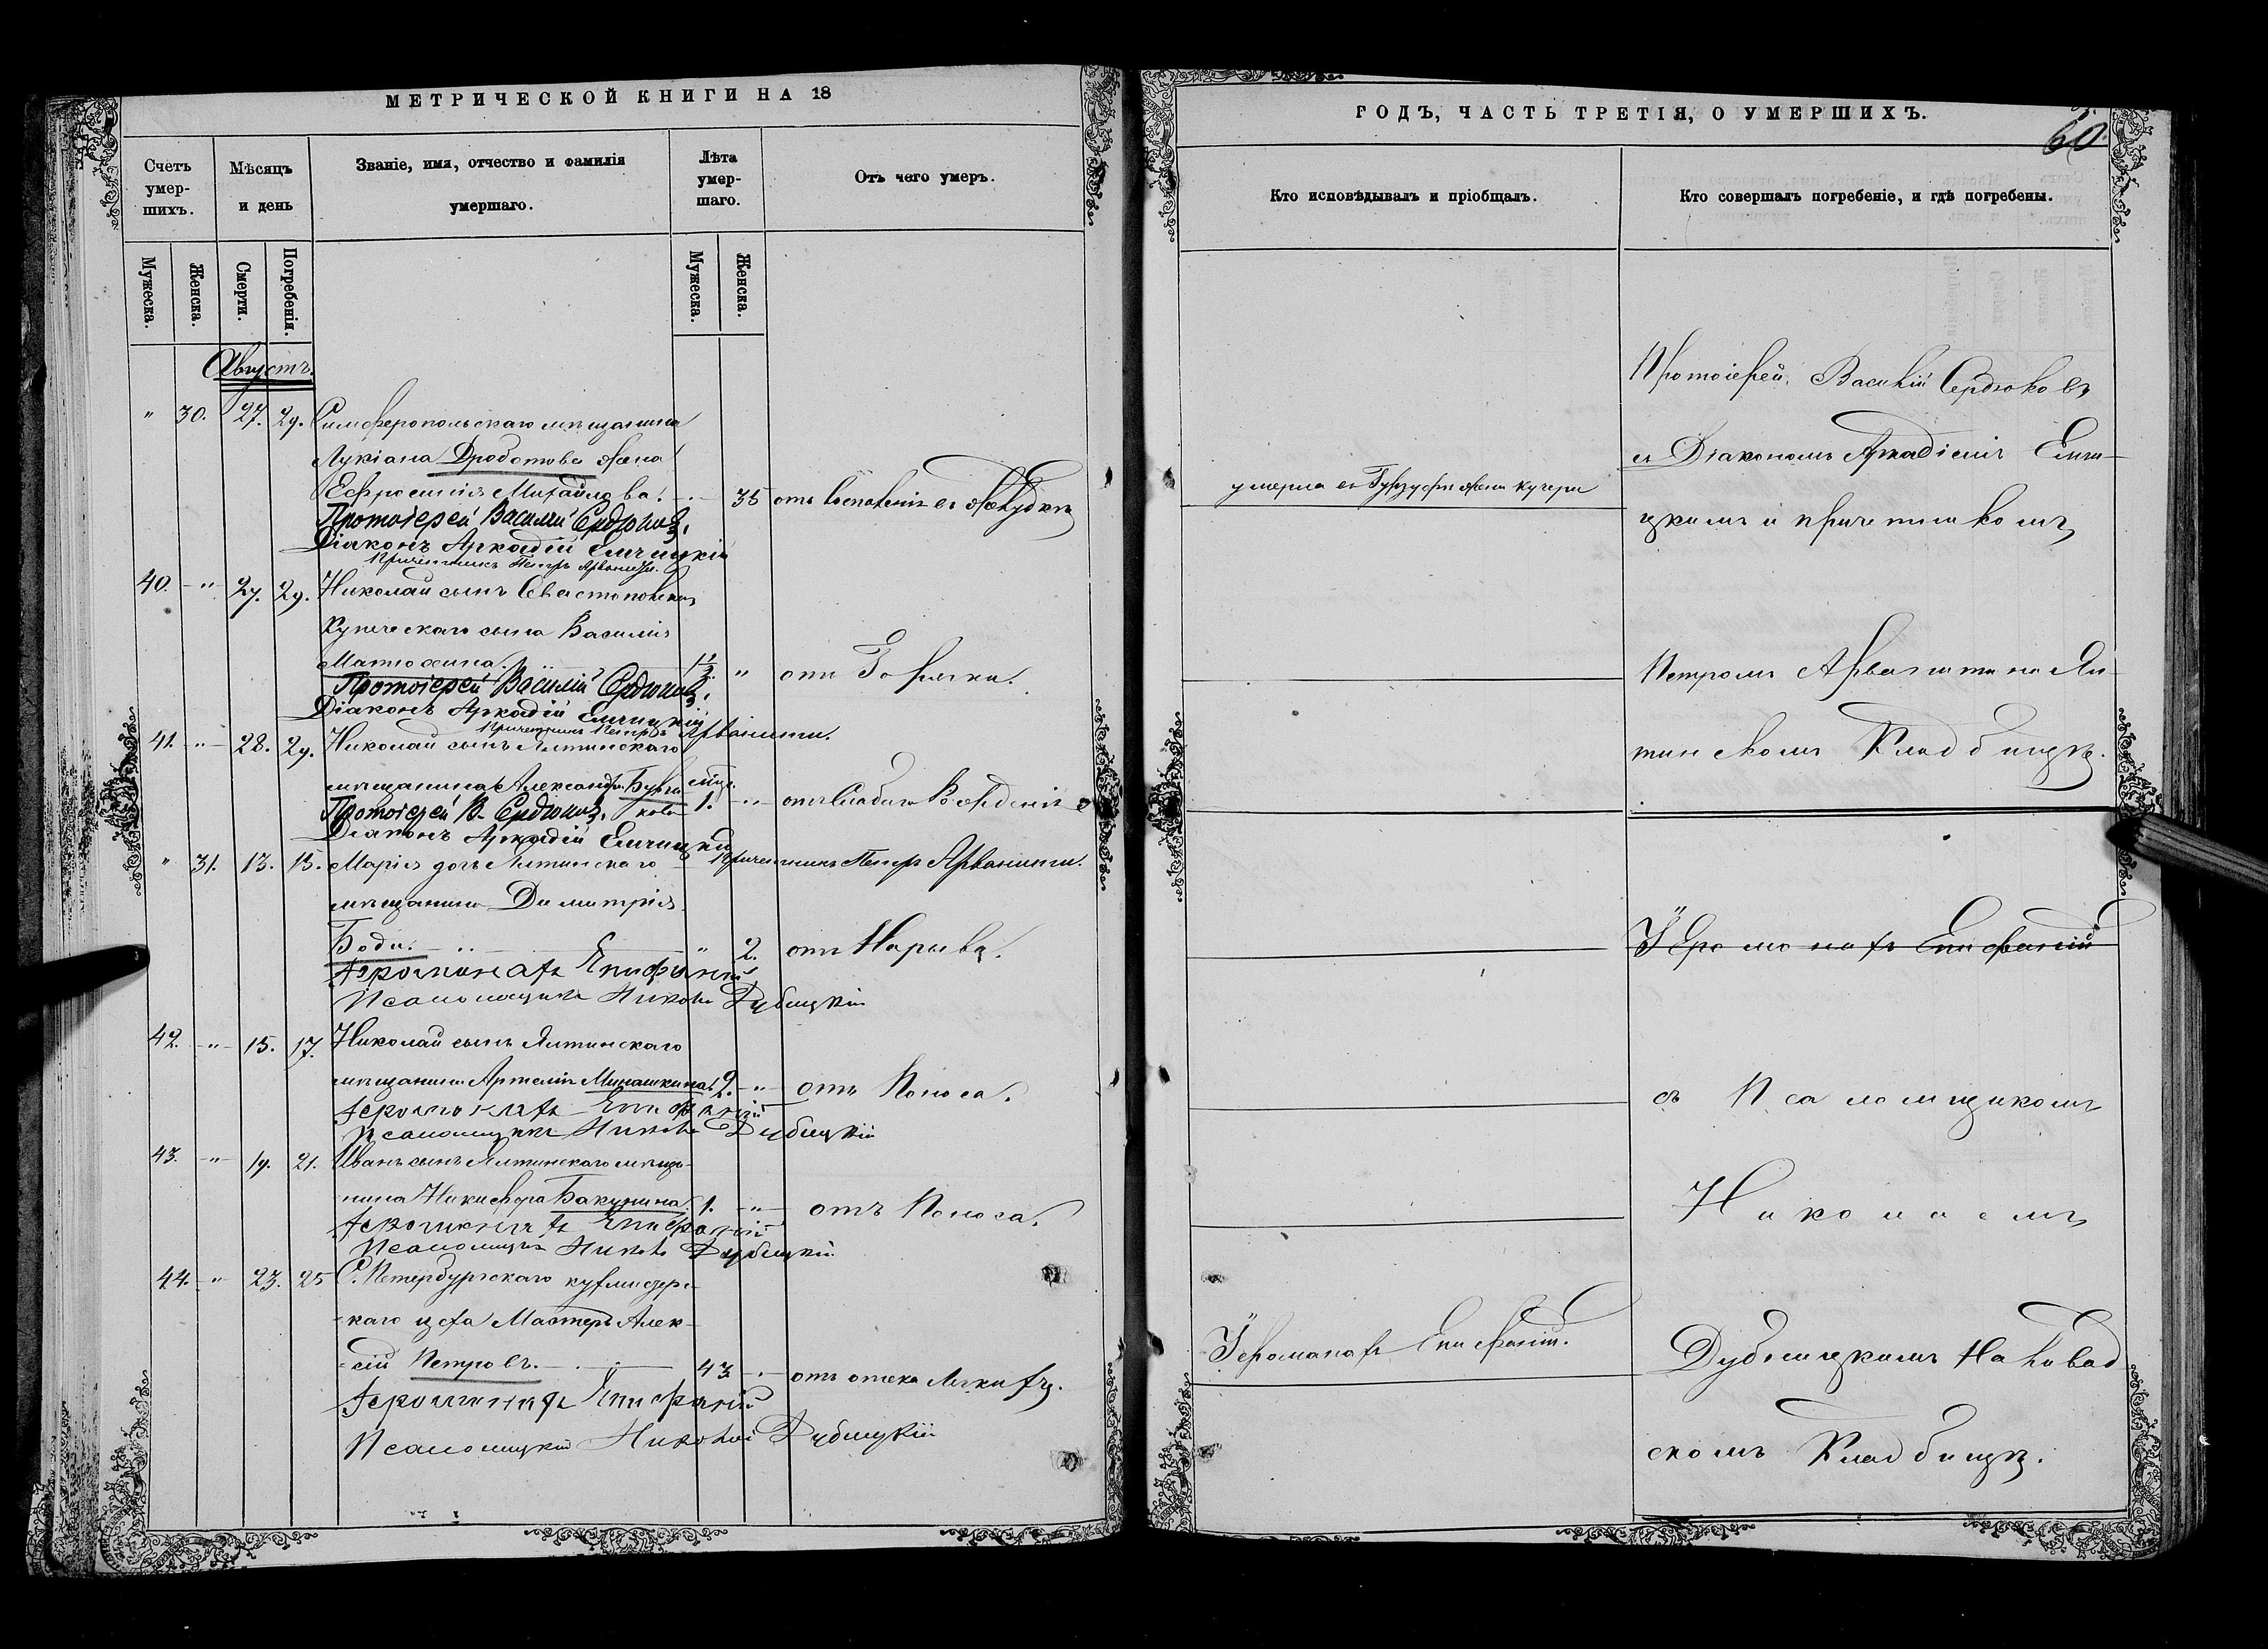 МЕТРИЧЕСКОЙ КНИГИ НА 18
Счетъ умер-шихъ.
Мѣсяцъ и день
Званіе, имя, отчество и фамилія умершаго.
Лѣта умер-шаго.
Отъ чего умеръ.
Мужеска.
Женска.
Смерти.
Погребенія.
Мужеска.
Женска.
Августъ.
" 30. 27. 29. Симферопольскаго мѣщанина
Лукіана Дроботова жена
Ефросинія Михайлова. 35 отъ
Протоіерей Василій Сердюковъ.
Діаконъ Аркадій Елчицкій
Причетникъ Петръ Арванити.
40. " 27. 29. Николай сынъ Севастопольск.
Купеческаго сына Василія
Матюхина. 1½ " отъ Горячки.
Протоіерей Василій Сердюковъ.
Діаконъ Аркадій Елчицкій
Причетникъ Петръ Арванити.
41. " 28. 29. Николай сынъ Ялтинскаго
мѣщанина Александра Бурла-
кова 1. " отъ Слабаго Рожденія
Протоіерей В. Сердюковъ.
Діаконъ Аркадій Елчицкій
Причетникъ Петръ Арванити.
" 31. 13. 15. Марія дочь Ялтинскаго
мѣщанина Димитрія
Боди. " 2. отъ Нарыва.
Іеромонахъ Епифаній
Псаломщикъ Николай Дубицкій
42. " 15. 17. Николай сынъ Ялтинскаго
мѣщанина Артемія Минашкина. 2. " отъ Поноса.
Іеромонахъ Епифаній
Псаломщикъ Николай Дубицкій
43. " 19. 21. Иванъ сынъ Ялтинскаго мѣща-
нина Никифора Бакунина. 1. " отъ Поноса.
Іеромонахъ Епифаній
Псаломщикъ Николай Дубицкій
44. " 23. 25 С. Петербургскаго кухмистерс-
каго цеха Мастеръ Алек-
сій Петровъ. 43 отъ отека Легкихъ.
Іеромонахъ Епифаній
Псаломщикъ Николай Дубицкій
ГОДЪ, ЧАСТЬ ТРЕТІЯ, О УМЕРШИХЪ.
60
Кто исповѣдывалъ и пріобщалъ.
Кто совершалъ погребеніе, и гдѣ погребены.
умерла въ Гурзуфѣ
Іеромонахъ Епифаній.
Протоіерей Василій Сердюковъ
съ Діакономъ Аркадіемъ Елчи-
цкимъ и причетникомъ
Петромъ Арванити на Ял-
тинскомъ Кладбищѣ.
Іеромонахъ Епифаній
съ Псаломщикомъ
Николаемъ
Дубицкимъ На
скомъ Кладбищѣ.